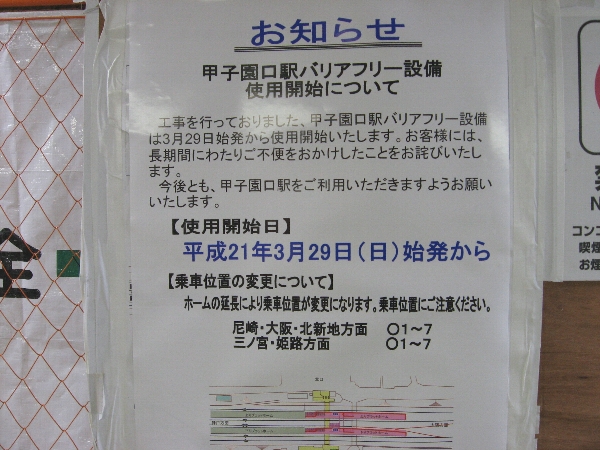 お知らせ
甲子園口駅バリアフリー設備
使用開始について
工事を行っておりました、甲子園口駅バリアフリー設備
は3月29日始発から使用開始いたします。お客様には、
長期間にわたりご不便をおかけしたことをお詫びいたし
ます。
今後とも、甲子園口駅をご利用いただきますようお願い
いたします。
【使用開始日】
平成21年3月29日(日)始発から
【乗車位置の変更について】
ホームの延長により乗車位置が変更になります。乗車位置にご注意ください。
尼崎・大阪・北新地方面 ○1~7
三ノ宮・姫路方面 ○1~7
全
コンコ
喫煙
お煙